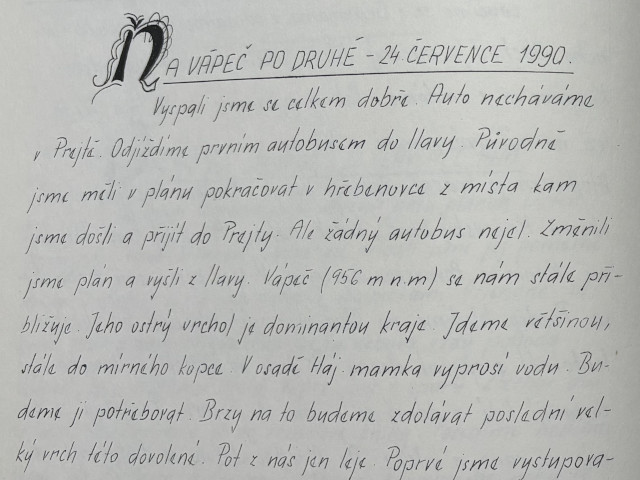 NA VÁPEČ PO DRUHÉ - 24. ČERVENCE 1990.
Vyspali jsme se celkem dobře. Auto necháváme
v Prejtě. Odjíždíme prvním autobusem do Ilavy. Původně
jsme měli v plánu pokračovat v hřebenovce z místa kam
jsme došli a přijít do Prejty. Ale žádný autobus nejel. Změnili
jsme plán a vyšli z Ilavy. Vápeč (956 m n.m) se nám stále při-
bližuje. Jeho ostrý vrchol je dominantou kraje. Jdeme většinou,
stále do mírného kopce. V osadě Háj mamka vyprosí vodu. Bu-
deme ji potřebovat. Brzy na to budeme zdolávat poslední vel-
ký vrch této dovolené. Pot z nás jen leje. Poprvé jsme vystupova-